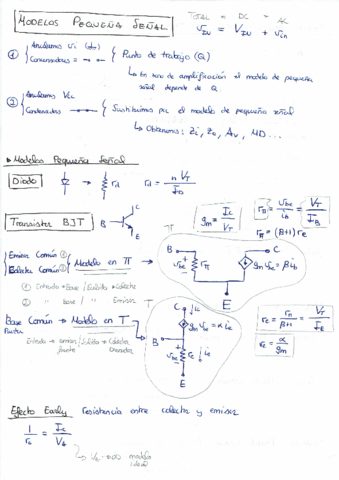 MODELOS PEQUEÑA SEÑAL
TOTAL = DC + AC
v_IN = V_IN + v_in
① Anulamos vi (ac)
Condensadores
Punto de trabajo (Q)
↳ En zona de amplificación el modelo de pequeña señal depende de Q.
② Anulamos Vcc
Condensadores
Sustituimos por el modelo de pequeña señal
↳ Obtenemos: Zi, Zo, Av, MD...
Modelos Pequeña Señal
Diodo
rd
rd = n V_T / I_D
Transistor BJT
B
C
E
gm = I_C / V_T
rπ = v_be / i_b = V_T / I_B
rπ = (β+1) r_E
Emisor Común ①
Colector Común ②
Modelo en π
π
B
C
v_be
rπ
gm v_be = β i_b
E
① Entrada → Base / Salida → Colector
② " base / " Emisor
Base Común → Modelo en T
Puerta
Entrada → emisor / Salida → Colector
T
C
i_c
gm v_be = α i_e
B
v_be
r_E
i_e
E
r_E = rπ / β+1 = V_T / I_E
r_E = α / gm
Efecto Early
resistencia entre colector y emisor
1 / ro = I_C / V_A
↳ V_A → ∞ modelo ideal